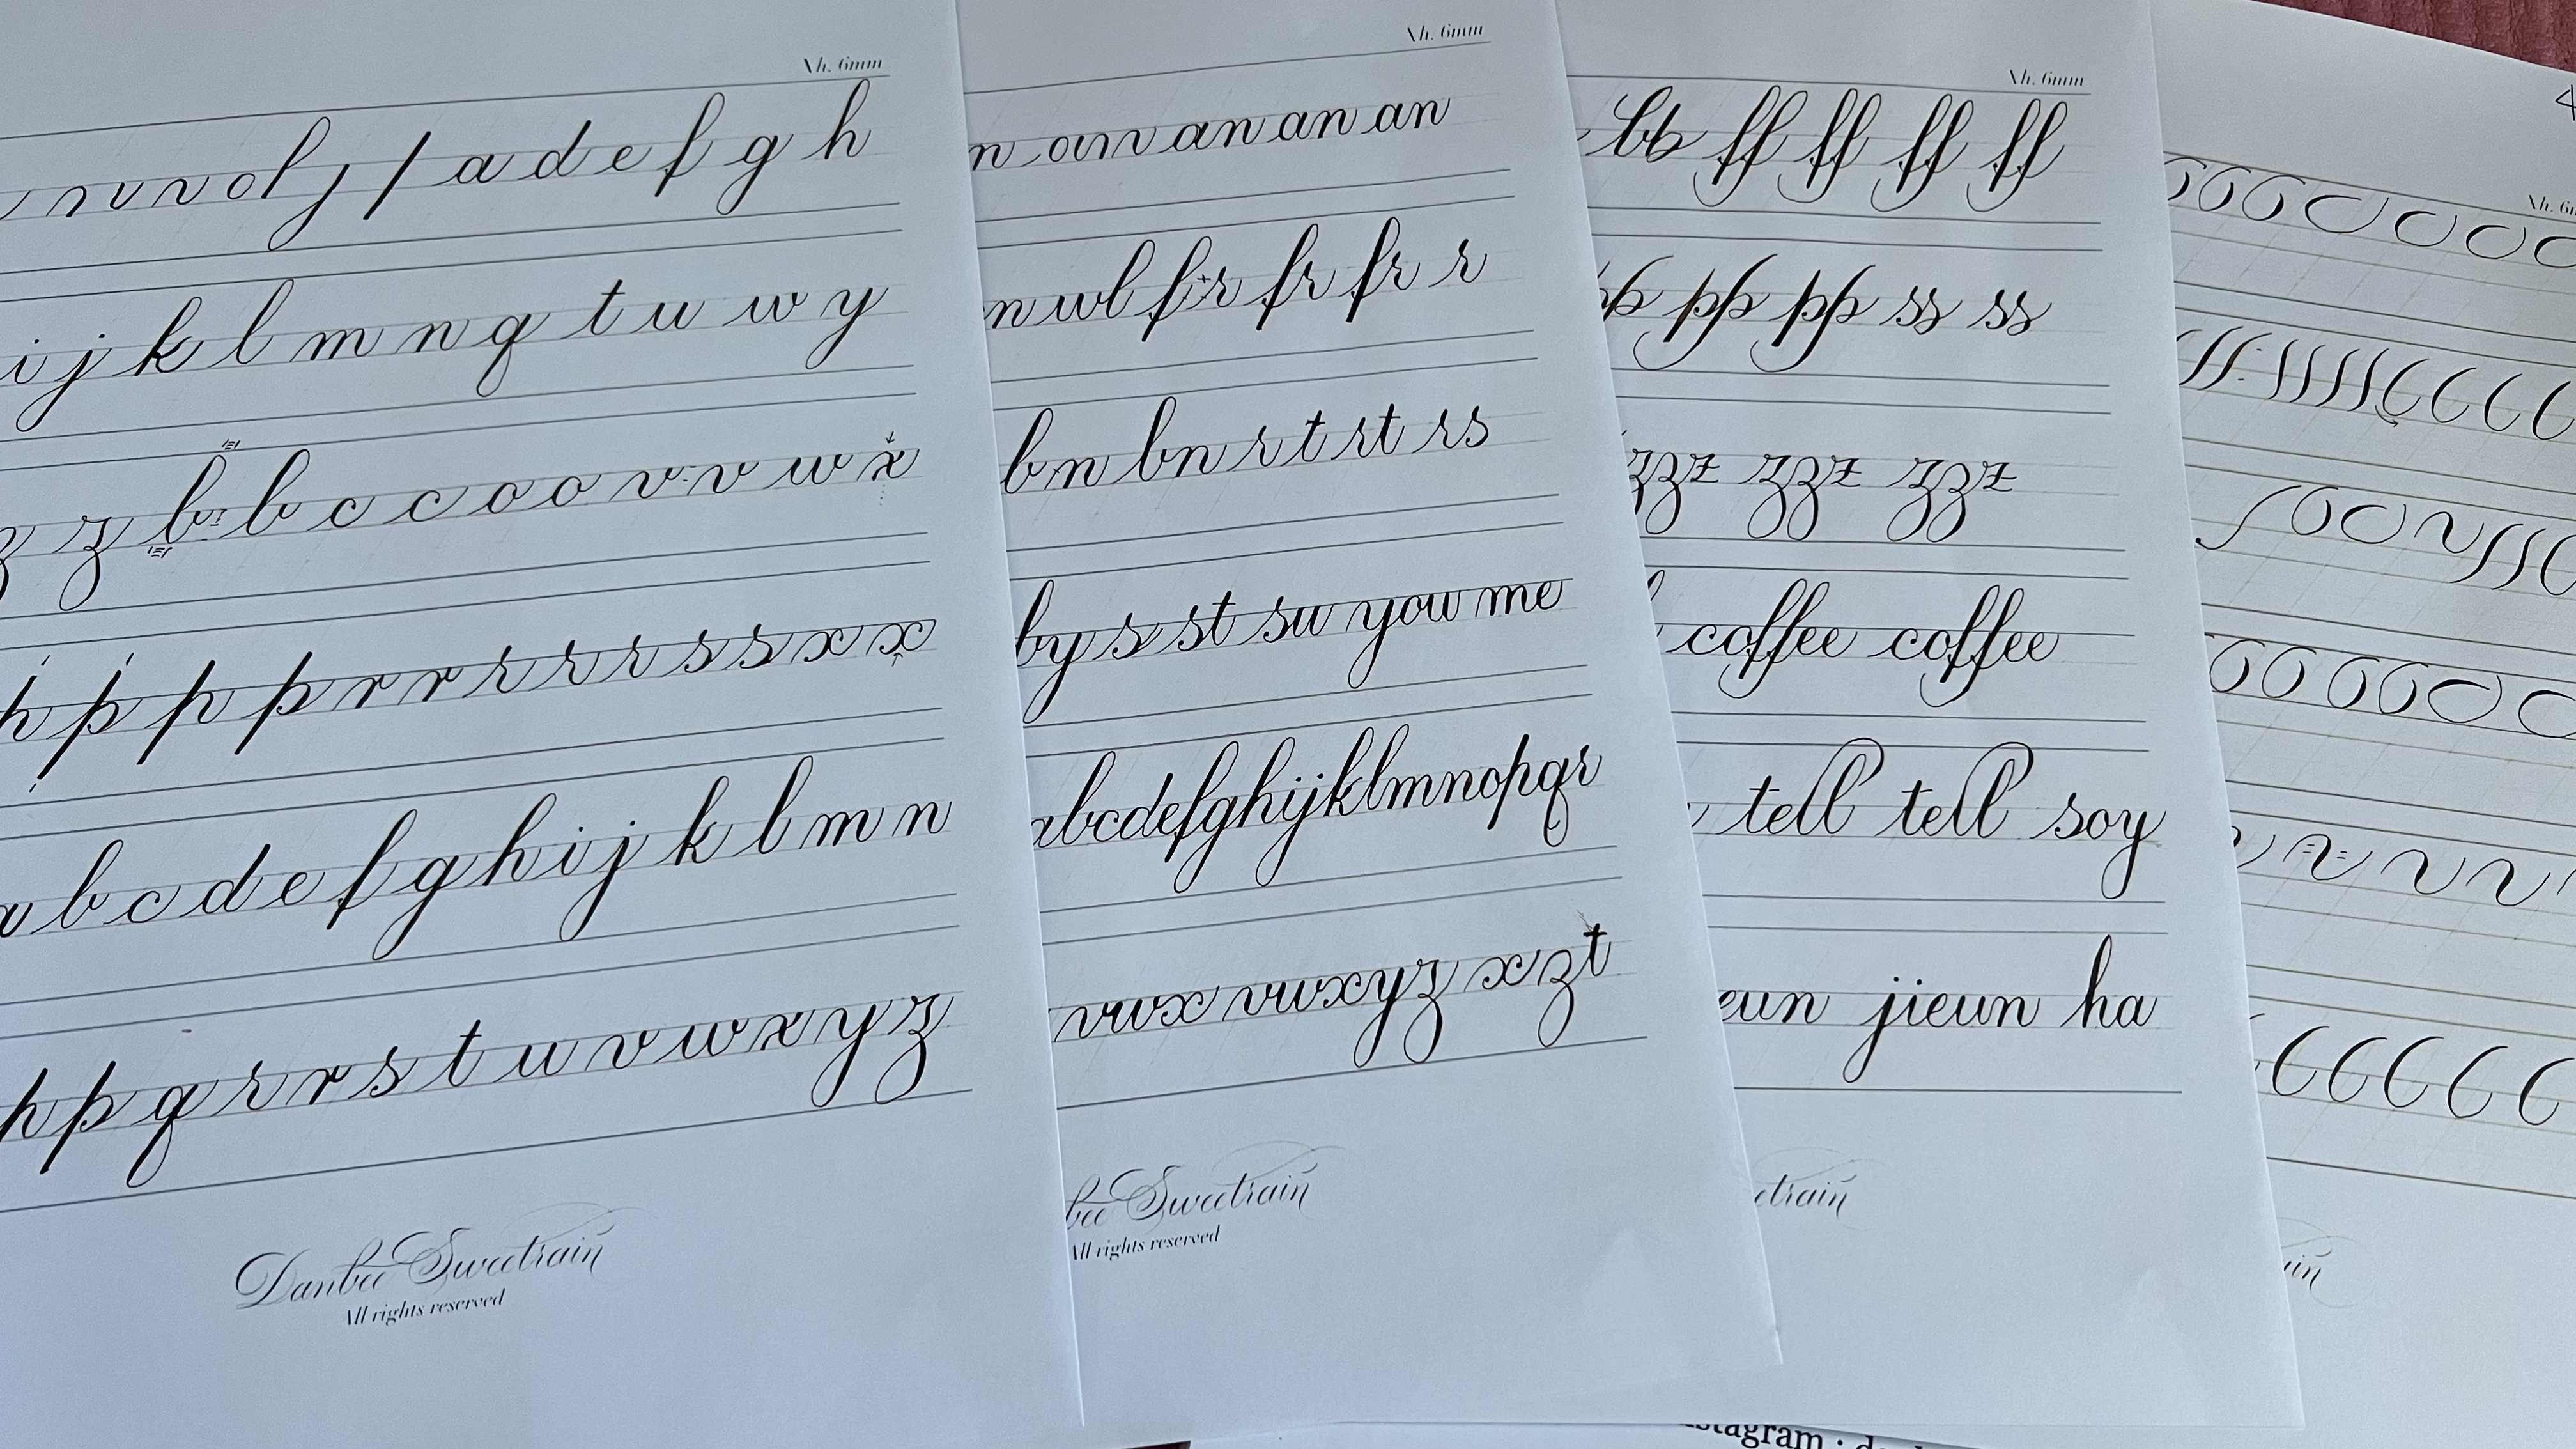 Xh. 6mm
a d e f g h
i j k l m n q t u w y
z z b b c c o o v v w x
h p p p r r r r r s s x x
a b c d e f g h i j k l m n
h p q r r s t u v w x y z
Danbee Sweetrain
All rights reserved
Xh. 6mm
n an an an an
n wl fr fr fr r
bn bn r t rt rs
by s st su you me
abcdefghijklmnopqr
vwx vwxyz xz t
bee Sweetrain
All rights reserved
Xh. 6mm
bb ff ff ff ff
pp pp pp ss ss
zzz zzz zzz
coffee coffee
tell tell soy
eun jieun ha
etrain
Xh. 6m
4
in
stagram : d